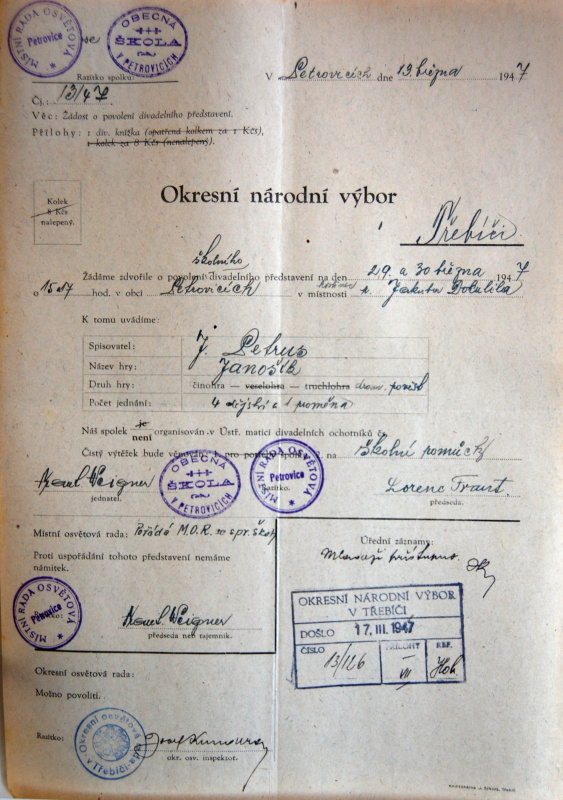 MÍSTNÍ RADA OSVĚTOVÁ
Petrovice
OBECNÁ
ŠKOLA
V PETROVICÍCH
Razítko spolku:
V Petrovicích dne 13. března 1947
Čj. 13/47
Věc: Žádost o povolení divadelního představení.
Přílohy: 1 div. knížka (opatřená kolkem za 1 Kčs),
1 kolek za 8 Kčs (nenalepený).
Kolek
8 Kčs
nalepený.
Okresní národní výbor
Třebíči
školního
Žádáme zdvořile o povolení divadelního představení na den 29. a 30 března 1947
o 15 a 17 hod. v obci Petrovicích v místnosti p. Jakuba Dokulila
K tomu uvádíme:
Spisovatel: J. Petrus
Název hry: Janošík
Druh hry: činohra — veselohra — truchlohra dram.
Počet jednání: 4 dějství a 1 proměna
Náš spolek je
není organisován v Ústř. matici divadelních ochotníků čs.
Čistý výtěžek bude věnován na školní pomůcky
OBECNÁ
ŠKOLA
V PETROVICÍCH
MÍSTNÍ RADA OSVĚTOVÁ
Petrovice
Razítko.
Karel Weigner
jednatel.
Lorenc Frant.
předseda.
Místní osvětová rada: Pořádá M.O.R. spr. škol
Proti uspořádání tohoto představení nemáme
námitek.
MÍSTNÍ RADA OSVĚTOVÁ
Petrovice
Karel Weigner
předseda neb tajemník.
Úřední záznamy:
OKRESNÍ NÁRODNÍ VÝBOR
V TŘEBÍČI
DOŠLO 17. III. 1947
ČÍSLO 13/126
PŘÍLOHY VII
REF.
Okresní osvětová rada:
Možno povoliti.
Razítko:
Okresní osvětová rada
v Třebíči
Josef
okr. osv. inspektor.